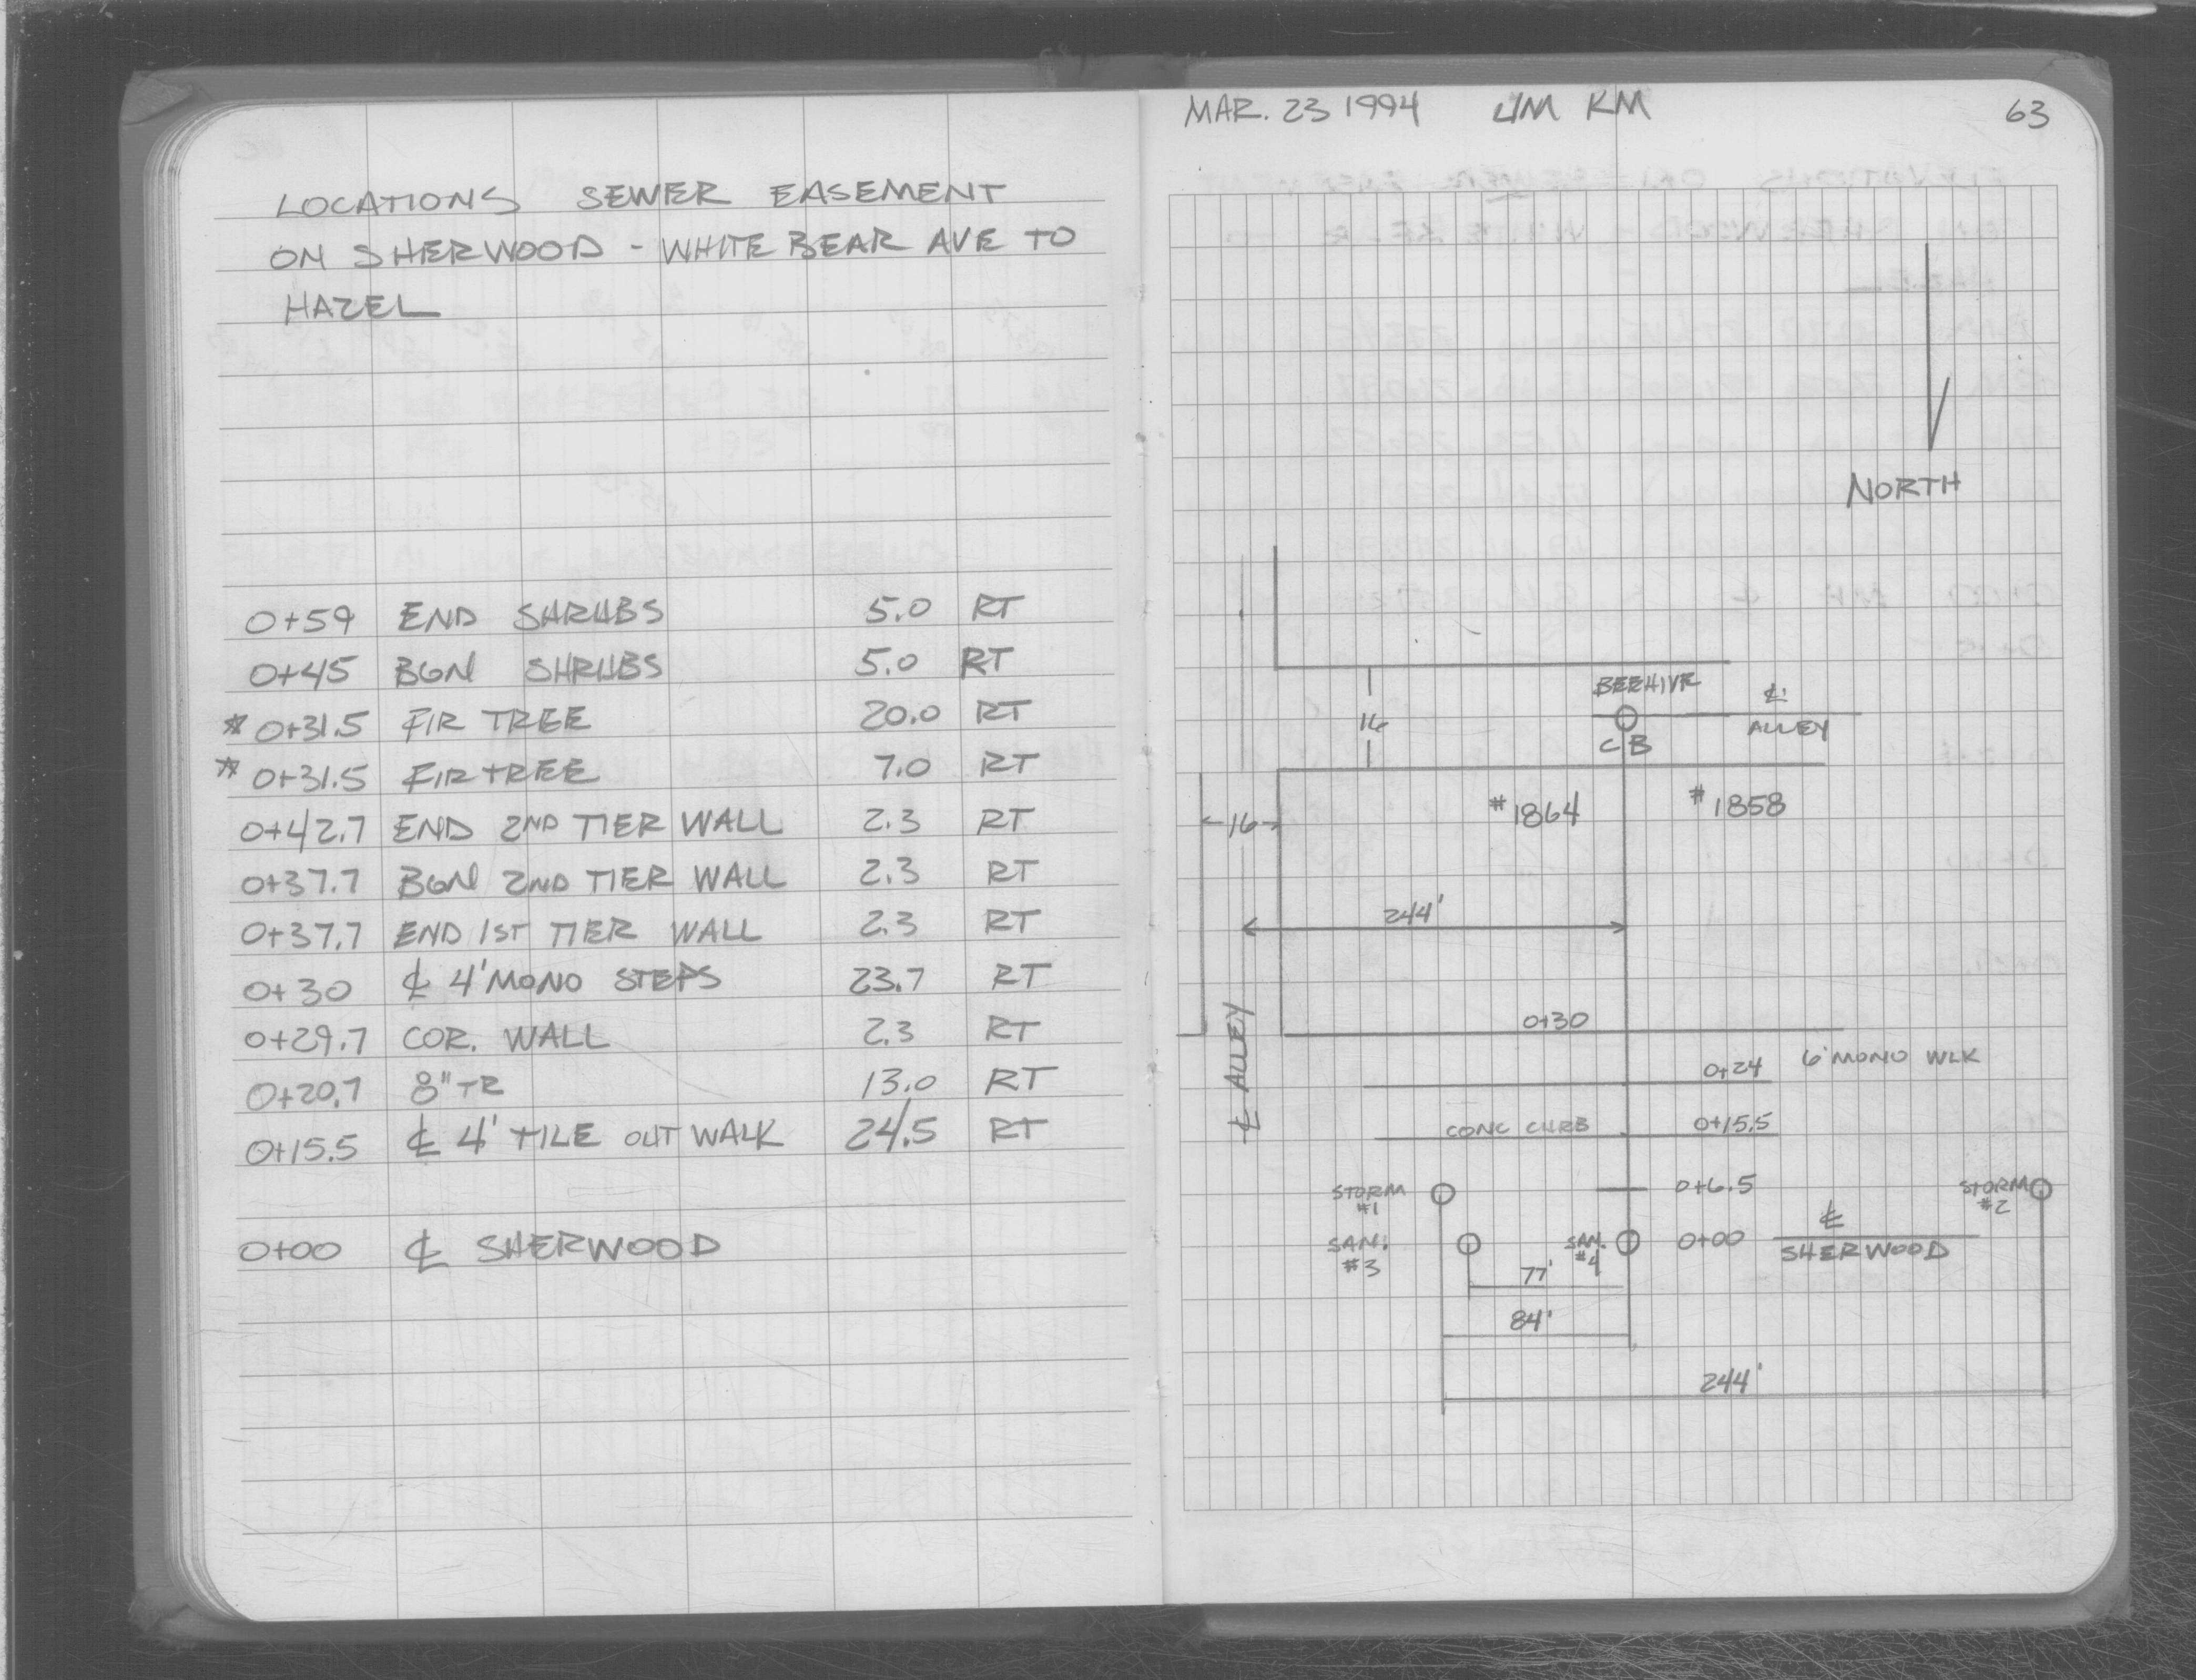 LOCATIONS SEWER EASEMENT
ON SHERWOOD - WHITE BEAR AVE TO
HAZEL
0+59 END SHRUBS 5.0 RT
0+45 BGN SHRUBS 5.0 RT
* 0+31.5 FIR TREE 20.0 RT
* 0+31.5 FIR TREE 7.0 RT
0+42.7 END 2ND TIER WALL 2.3 RT
0+37.7 BGN 2ND TIER WALL 2.3 RT
0+37.7 END 1ST TIER WALL 2.3 RT
0+30 ℄ 4' MONO STEPS 23.7 RT
0+29.7 COR. WALL 2.3 RT
0+20.7 8" TR 13.0 RT
0+15.5 ℄ 4' TILE OUT WALK 24.5 RT
0+00 ℄ SHERWOOD
MAR. 23 1994 JM KM 63
NORTH
BEEHIVE
℄
16
ALLEY
CB
#1864 #1858
16
244'
℄ ALLEY
0+30
0+24 6' MONO WLK
CONC CURB 0+15.5
STORM #1
0+6.5
STORM #2
SAN. #3
SAN. #4
0+00
℄
SHERWOOD
77'
84'
244'